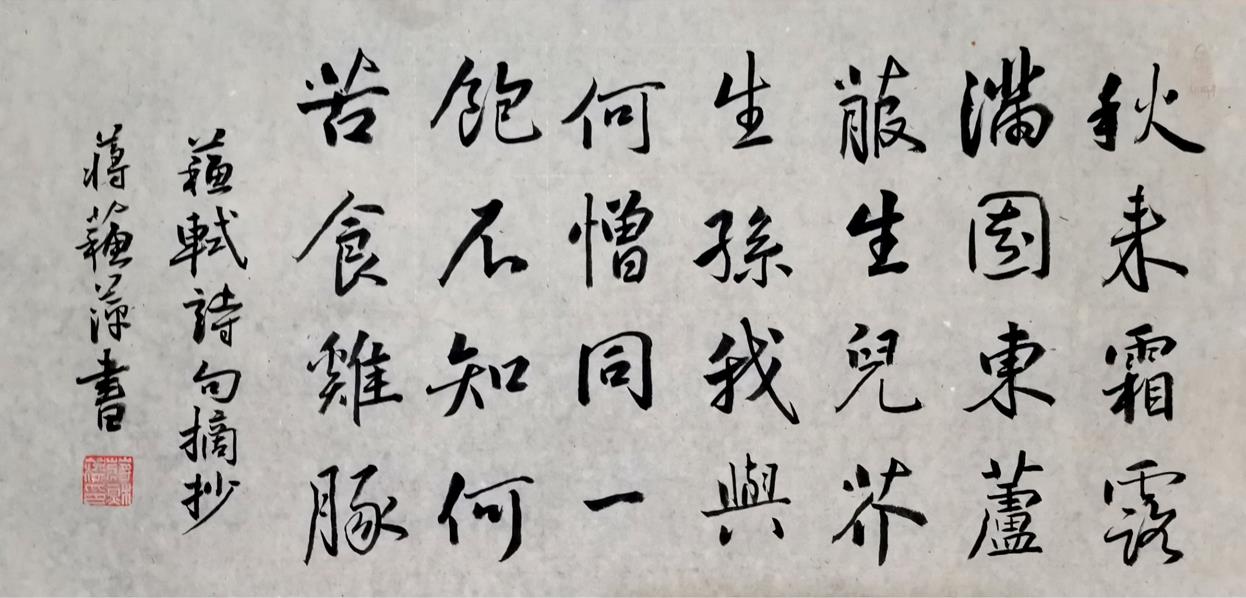 秋来霜露
滿園東蘆
菔生兒芥
生孫我與
何憎同一
飽不知何
苦食雞豚
蘇軾詩句摘抄
蔣蘇萍書